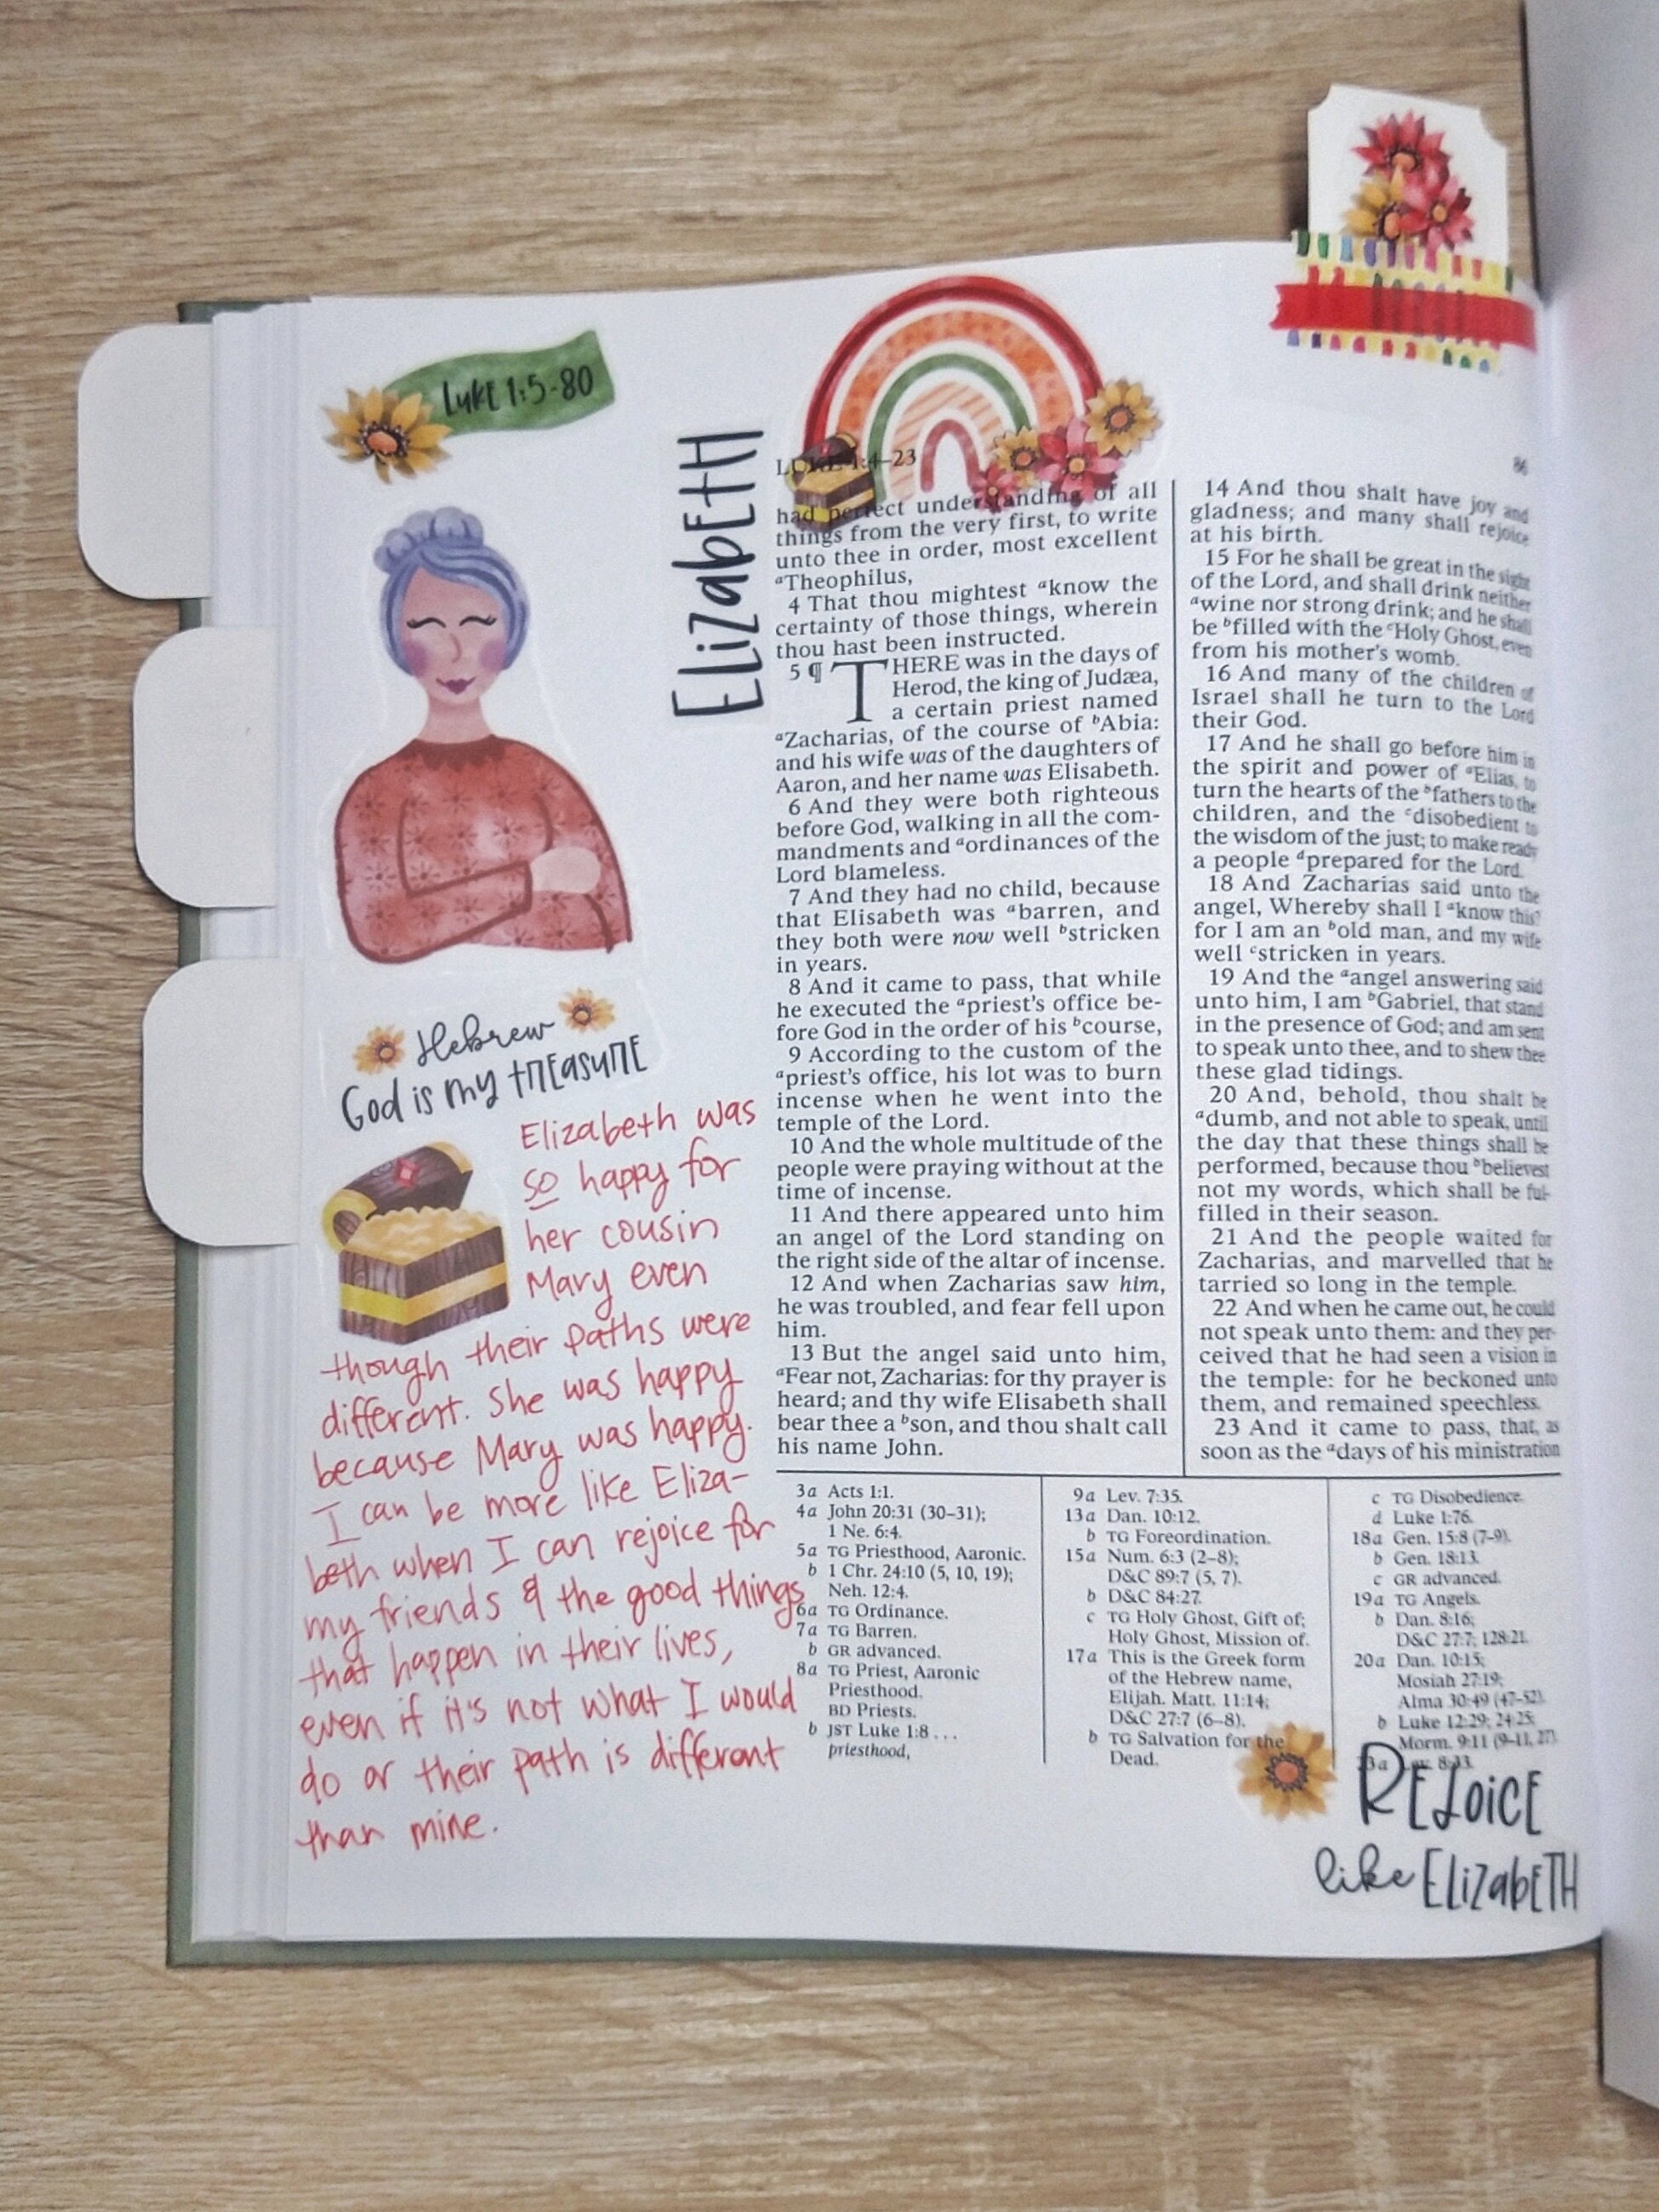 Luke 1:5-80
Elizabeth
Hebrew
God is my treasure
Elizabeth was
so happy for
her cousin
Mary even
though their paths were
different. She was happy
because Mary was happy.
I can be more like Eliza-
beth when I can rejoice for
my friends & the good things
that happen in their lives,
even if it's not what I would
do or their path is different
than mine.
LUKE 1:4–23
had perfect understanding of all
things from the very first, to write
unto thee in order, most excellent
aTheophilus,
4 That thou mightest aknow the
certainty of those things, wherein
thou hast been instructed.
5 ¶ THERE was in the days of
Herod, the king of Judæa,
a certain priest named
aZacharias, of the course of bAbia:
and his wife was of the daughters of
Aaron, and her name was Elisabeth.
6 And they were both righteous
before God, walking in all the com-
mandments and aordinances of the
Lord blameless.
7 And they had no child, because
that Elisabeth was abarren, and
they both were now well bstricken
in years.
8 And it came to pass, that while
he executed the apriest's office be-
fore God in the order of his bcourse,
9 According to the custom of the
apriest's office, his lot was to burn
incense when he went into the
temple of the Lord.
10 And the whole multitude of the
people were praying without at the
time of incense.
11 And there appeared unto him
an angel of the Lord standing on
the right side of the altar of incense.
12 And when Zacharias saw him,
he was troubled, and fear fell upon
him.
13 But the angel said unto him,
aFear not, Zacharias: for thy prayer is
heard; and thy wife Elisabeth shall
bear thee a bson, and thou shalt call
his name John.
86
14 And thou shalt have joy and
gladness; and many shall rejoice
at his birth.
15 For he shall be great in the sight
of the Lord, and shall drink neither
awine nor strong drink; and he shall
be bfilled with the cHoly Ghost, even
from his mother's womb.
16 And many of the children of
Israel shall he turn to the Lord
their God.
17 And he shall go before him in
the spirit and power of aElias, to
turn the hearts of the bfathers to the
children, and the cdisobedient to
the wisdom of the just; to make ready
a people dprepared for the Lord.
18 And Zacharias said unto the
angel, Whereby shall I aknow this?
for I am an bold man, and my wife
well cstricken in years.
19 And the aangel answering said
unto him, I am bGabriel, that stand
in the presence of God; and am sent
to speak unto thee, and to shew thee
these glad tidings.
20 And, behold, thou shalt be
adumb, and not able to speak, until
the day that these things shall be
performed, because thou bbelievest
not my words, which shall be ful-
filled in their season.
21 And the people waited for
Zacharias, and marvelled that he
tarried so long in the temple.
22 And when he came out, he could
not speak unto them: and they per-
ceived that he had seen a vision in
the temple: for he beckoned unto
them, and remained speechless.
23 And it came to pass, that, as
soon as the adays of his ministration
3a Acts 1:1.
4a John 20:31 (30–31);
1 Ne. 6:4.
5a TG Priesthood, Aaronic.
b 1 Chr. 24:10 (5, 10, 19);
Neh. 12:4.
6a TG Ordinance.
7a TG Barren.
b GR advanced.
8a TG Priest, Aaronic
Priesthood.
BD Priests.
b JST Luke 1:8 . . .
priesthood,
9a Lev. 7:35.
13a Dan. 10:12.
b TG Foreordination.
15a Num. 6:3 (2–8);
D&C 89:7 (5, 7).
b D&C 84:27.
c TG Holy Ghost, Gift of;
Holy Ghost, Mission of.
17a This is the Greek form
of the Hebrew name,
Elijah. Matt. 11:14;
D&C 27:7 (6–8).
b TG Salvation for the
Dead.
c TG Disobedience.
d Luke 1:76.
18a Gen. 15:8 (7–9).
b Gen. 18:13.
c GR advanced.
19a TG Angels.
b Dan. 8:16;
D&C 27:7; 128:21.
20a Dan. 10:15;
Mosiah 27:19;
Alma 30:49 (47–52).
b Luke 12:29; 24:25;
Morm. 9:11 (9–11, 27).
8:33.
Rejoice
like Elizabeth